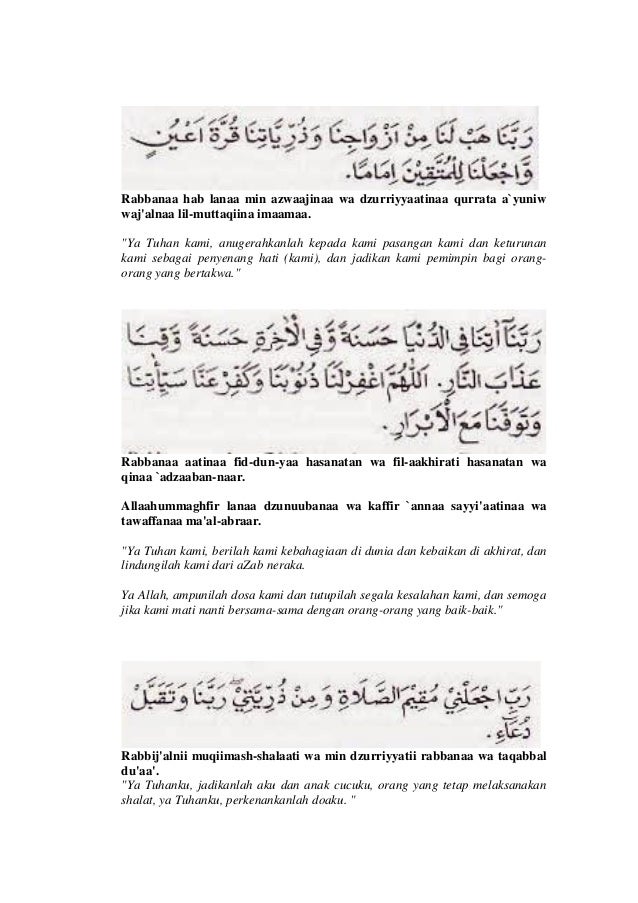 رَبَّنَا هَبْ لَنَا مِنْ اَزْوَاجِنَا وَذُرِّيَّاتِنَا قُرَّةَ اَعْيُنٍ
وَّاجْعَلْنَا لِلْمُتَّقِيْنَ اِمَامًا.
Rabbanaa hab lanaa min azwaajinaa wa dzurriyyaatinaa qurrata a`yuniw
waj'alnaa lil-muttaqiina imaamaa.
"Ya Tuhan kami, anugerahkanlah kepada kami pasangan kami dan keturunan
kami sebagai penyenang hati (kami), dan jadikan kami pemimpin bagi orang-
orang yang bertakwa."
رَبَّنَآ اٰتِنَا فِى الدُّنْيَا حَسَنَةً وَّفِى الْاٰخِرَةِ حَسَنَةً وَّقِنَا
عَذَابَ النَّارِ. اَللّٰهُمَّ اغْفِرْلَنَا ذُنُوْبَنَا وَكَفِّرْعَنَّا سَيِّأٰتِنَا
وَتَوَفَّنَا مَعَ الْاَبْرَارِ.
Rabbanaa aatinaa fid-dun-yaa hasanatan wa fil-aakhirati hasanatan wa
qinaa `adzaaban-naar.
Allaahummaghfir lanaa dzunuubanaa wa kaffir `annaa sayyi'aatinaa wa
tawaffanaa ma'al-abraar.
"Ya Tuhan kami, berilah kami kebahagiaan di dunia dan kebaikan di akhirat, dan
lindungilah kami dari aZab neraka.
Ya Allah, ampunilah dosa kami dan tutupilah segala kesalahan kami, dan semoga
jika kami mati nanti bersama-sama dengan orang-orang yang baik-baik."
رَبِّ اجْعَلْنِيْ مُقِيْمَ الصَّلَاةِ وَ مِنْ ذُرِّيَّتِيْ ۖ رَبَّنَا وَتَقَبَّلْ
دُعَآءِ.
Rabbij'alnii muqiimash-shalaati wa min dzurriyyatii rabbanaa wa taqabbal
du'aa'.
"Ya Tuhanku, jadikanlah aku dan anak cucuku, orang yang tetap melaksanakan
shalat, ya Tuhanku, perkenankanlah doaku. "